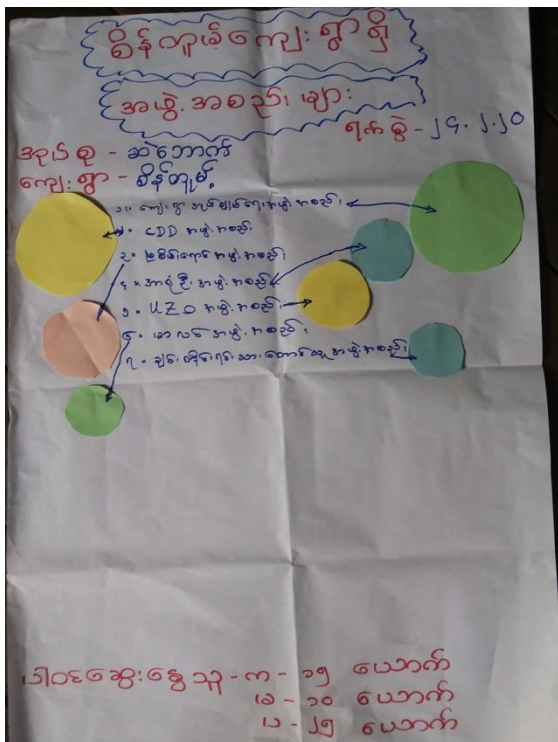 စိန်ကူးစ်ကျေးရွာရှိ
အဖွဲ့အစည်းများ
ရက်စွဲ - ၂၄.၂.၂၀
အုပ်စု - ဆဲဘောက်
ကျေးရွာ -
၁။ ကျေးရွာ အုပ်ချုပ်ရေးအဖွဲ့အစည်း
၂။ CDD အဖွဲ့အစည်း
၃။ မြစိမ်းရောင် အဖွဲ့အစည်း
၄။ အာရုံဦး အဖွဲ့အစည်း
၅။ UZO အဖွဲ့အစည်း
၆။ အဖွဲ့အစည်း
၇။ ချင်းတိုင်းရင်းသား တောင်သူ အဖွဲ့အစည်း
ပါဝင်ဆွေးနွေးသူ - က - ၁၅ ယောက်
ခ - ၁၀ ယောက်
ပ - ၂၅ ယောက်